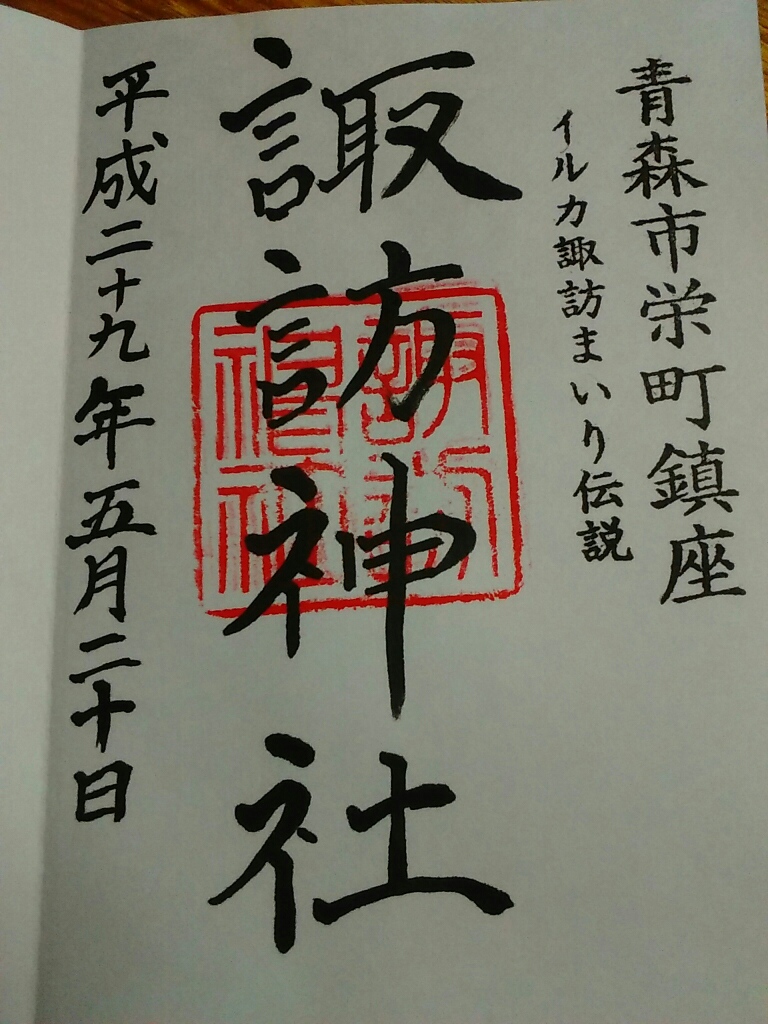 青森市栄町鎮座
イルカ諏訪まいり伝説
諏訪神社
諏訪神社
平成二十九年五月二十日